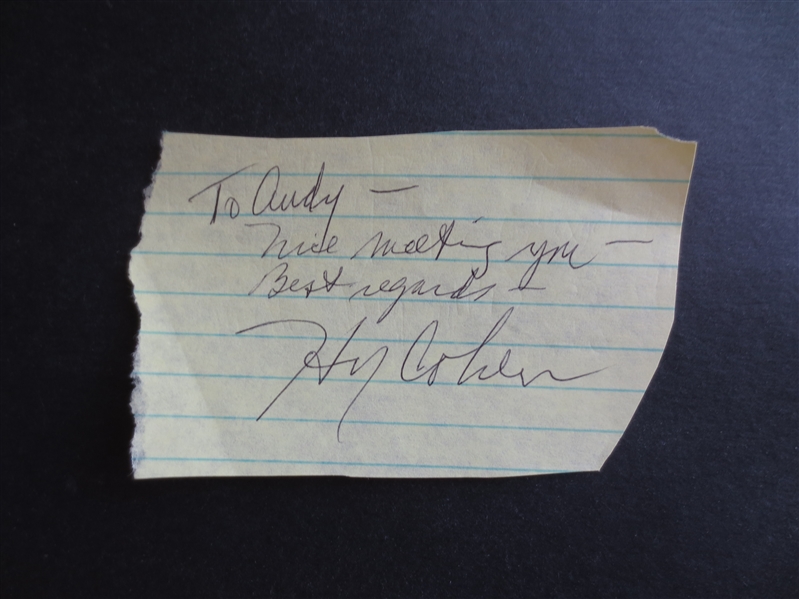 To Andy —
Nice meeting you —
Best regards —
Hy Cohen